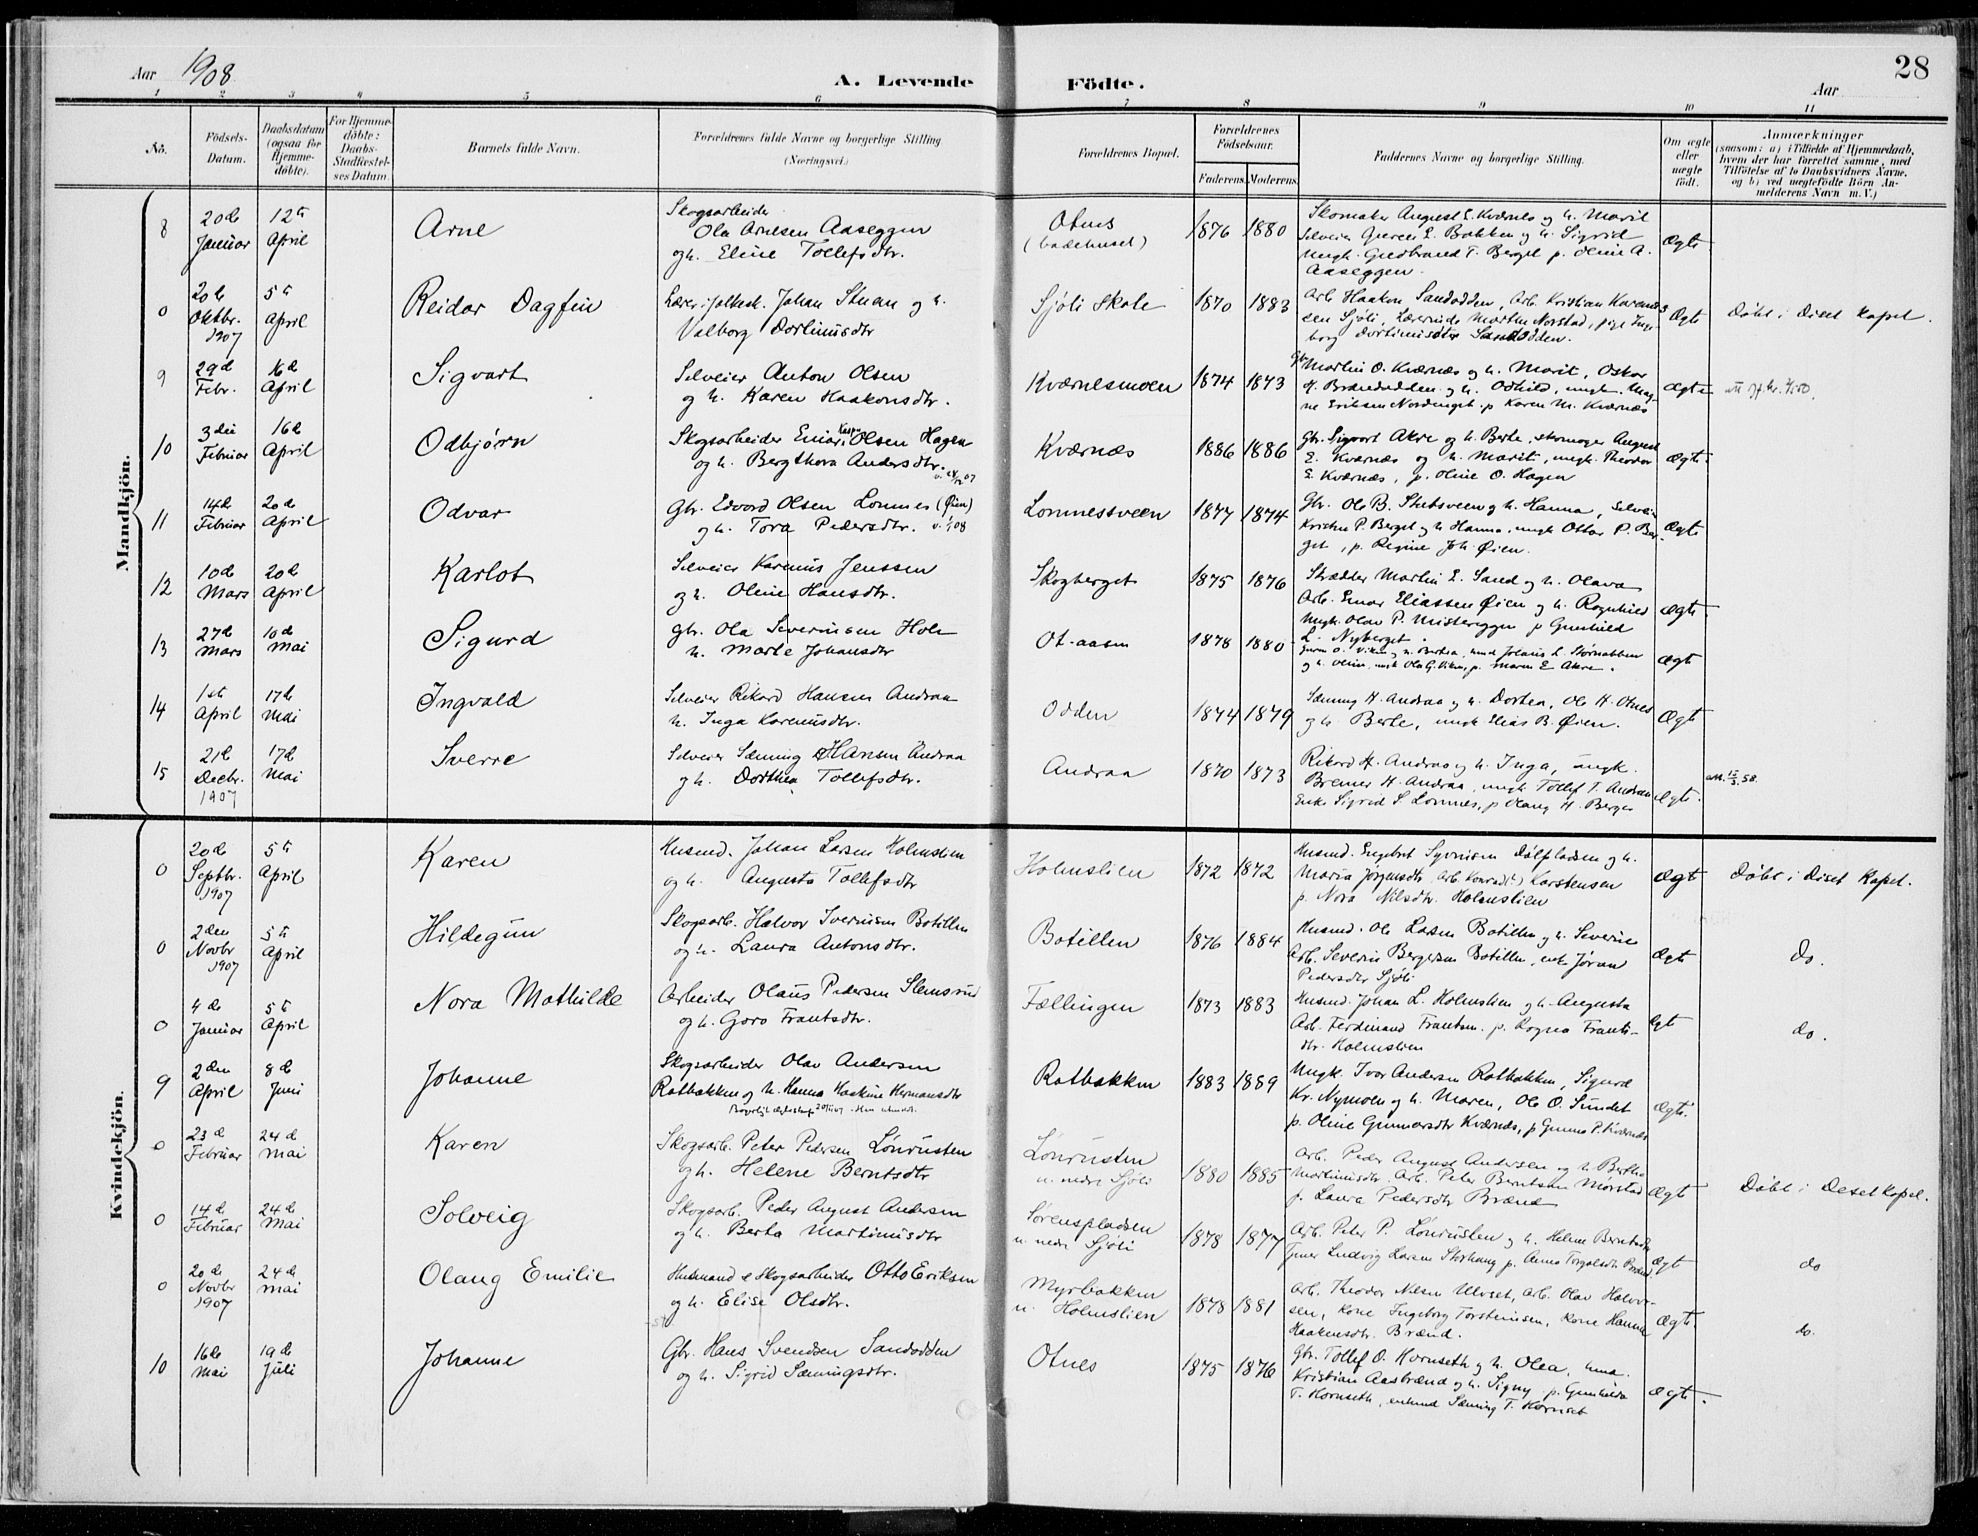 Aar 1908
A. Levende
Födte.
Aar
28
1 2 3 4 5 6 7 8 9 10 11
No.
Födsels-Datum.
Daabsdatum (ogsaa for Hjemme-döbte).
For Hjemme-döbte: Daabs-Stadfæstel-ses Datum.
Barnets fulde Navn.
Forældrenes fulde Navne og borgerlige Stilling (Næringsvei.)
Forældrenes Bopæl.
Forældrenes Födselsaar.
Faderens. Moderens.
Faddernes Navne og borgerlige Stilling.
Om ægte eller uægte födt.
Anmærkninger
(saasom: a) i Tilfælde af Hjemmedaab,
hvem der har forrettet samme, med
Tilföielse af to Daabsvidners Navne.
og b) ved uægtefödte Börn An-
melderens Navn m. V.)
Mandkjön.
8 20de Januar 12te April Arne
Skogsarbeider
Ola Arnesen Aaseggen
og h. Eline Tollefsdtr.
Otnes
(badehuset)
1876 1880
Skomaker August E. Kværnes og h. Marit
Selveier E. Bakken og h. Sigrid
Ungk. Gudbrand T. Berget p. Oline A.
Aaseggen.
Ægte
0 20de Oktbr. 1907 5te April Reidar Dagfin
Lærer i folkesk. Johan Stuen og h.
Valborg Dortinusdtr
Sjöli Skole 1870 1883
Arb. Haakon Sandodden, Arb. Kristian Karenus
sen Sjöli, Lærerinde Marthe Norstad, pige Inge-
borg Dortinusdtr Sandodden.
Ægte Döbt i Diset Kapel.
9 29de Febr. 16de April Sigvart
Selveier Anton Olsen
og h. Karen Haakonsdtr.
Kværnesmoen 1874 1873
Gbr Martin O. Kværnes og h. Marit, Oskar
H. Brændodden og h. Odhild, ungk. Mag-
ne Eriksen Nordenget p Karen M. Kværnes
Ægte
10 3die Februar 16de April Odbjørn
Skogsarbeider Einar Olsen Hagen
og h. Bergthora Andersdtr.
Kværnæs 1886 1886
Gbr. Sigvart Akre og h. Berte, skomager August
E. Kværnæs og h. Marit, ungk. Theodor
E. Kværnæs, p. Oline O. Hagen
Ægte
11 14de Februar 20de April Odvar
Gbr. Edvard Olsen Lomnes (Øien)
og h. Tora Pedersdtr. v. 1/08
Lomnessveen 1877 1874
Gbr. Ole B. Stubsveen og h. Hanna, Selveier
Kristen P. Berget og h Hanna, ungk Ottar P. Ber-
get, p. Regine Joh. Øien.
Ægte
12 10de Mars 20de April Karlot
Selveier Karenus Jenssen
og h. Oline Hansdtr.
Skogberget 1875 1876
Skrædder Martin E. Sand og h. Olava
Arb. Einar Eliassen Øien og h. Ragnhild
Ungk. Olav P. Mistereggen p Gunhild
L. Nyberget.
Ægte
13 27de Mars 10de Mai Sigurd
Gbr. Ola Severinsen Hole
h. Marte Johansdtr
Ot-aasen 1878 1880
og h. Oline, ungk Ola G. Viken, p. Maren E Akre.
Ægte
14 1ste April 17de Mai Ingvald
Selveier Rikard Hansen Andraa
h. Inga Karenusdtr.
Odden 1874 1879
Sæming H. Andraa og h. Dorthea, Ole H. Otnes
og h. Berte, ungk Elias B. Øien.
Ægte
15 21de Decbr. 1907 17de Mai Sverre
Selveier Sæming Hansen Andraa
og h. Dorthea Tollefsdtr.
Andraa 1870 1873
Rikard H. Andraa og h. Inga, ungk.
Bremer H. Andraa, ungk Tollef T. Andraa
Enke Sigrid S Lomnes, p Olaug H. Berger
Ægte.
Kvindekjön.
0 20de Septbr. 1907 5te April Karen
Husmd. Johan Larsen Holmslien
og h. Augusta Tollefsdtr
Holmslien 1872 1872
Husmd. Engebret Syversen Dölpladsen og h.
Maria Jörgensdtr, Arb. Konrad (?) Karstensen
p. Nora Nilsdtr. Holmslien
Ægte Döbt i Diset Kapel.
0 2den Novbr 1907 5te April Hildegun
Skogsarb. Halvor Iversen Botillen
og h. Laura Antonsdtr.
Botillen 1876 1884
Husmd. Ole Larsen Botillen og h. Severine
Arb. Severin Bergersen Botillen, enke Jøran
Pedersdtr Sjöli
Ægte do.
0 4de Januar 5te April Nora Mathilde
Arbeider Olaus Pedersen Slemsrud
og h. Goro Frantsdtr.
Fællingen 1873 1883
Husmd. Johan L. Holmslien og h. Augusta
Arb. Ferdinand Frantsen. p. Ragna Frants-
dtr. Holmslien
Ægte do.
9 2den April 8de Juni Johanne
Skogsarbeider Olav Andersen
Ratbakken og h. Hanna Haakine Hermansdtr
Ratbakken 1883 1889
Ungk. Ivar Andersen Ratbakken, Sigurd
Kr. Nymoen og h. Maren, Ole O. Sundet
p. Oline Gunnarsdtr Kværnes, p Gunna P. Kværnæs
Ægte.
0 23de Februar 24de Mai Karen
Skogsarb. Peter Pedersen Lönrusten
og h. Helene Berntsdtr
Lönrusten
u. nedre Sjöli
1880 1885
Arb. Peder August Andersen og h. Bertha
Martinusdtr. Arb. Peter Berntsen Mörstad
p. Laura Pedersdtr Brænd
Ægte Döbt i Deset Kapel.
0 14de Februar 24de Mai Solveig
Skogsarb. Peder August Andersen
og h. Berta Martinusdtr
Sörenspladsen
u. nedre Sjöli
1878 1877
Arb. Peter P. Lönrusten og h. Helene Berntsdtr
Tjener Ludvig Larsen Storhaug p. Anna Torgalsdtr Brænd
Ægte do
0 20de Novbr 1907 24de Mai Olaug Emilie
Husmand & skogsarbeider Otto Eriksen
og h. Elise Olsdtr.
Myrbakken
u. Holmslien
1878 1881
Arb. Theodor Nilsen Ulvset, Arb. Olav Halvor-
sen, Kone Ingeborg Torsteinsen, Kone Hanna
Haakensdtr. Brænd.
Ægte. do.
10 16de Mai 19de Juli Johanne
Gbr. Hans Svendsen Sandodden
og h. Sigrid Sæmingsdtr.
Otnes 1875 1876
Gbr. Tollef O. Hornseth og h. Olea,
Kristian Aasbrænd og h. Signy p. Gunhilda
T. Hornseth, enkemd Sæming T. Hornset
Ægte.